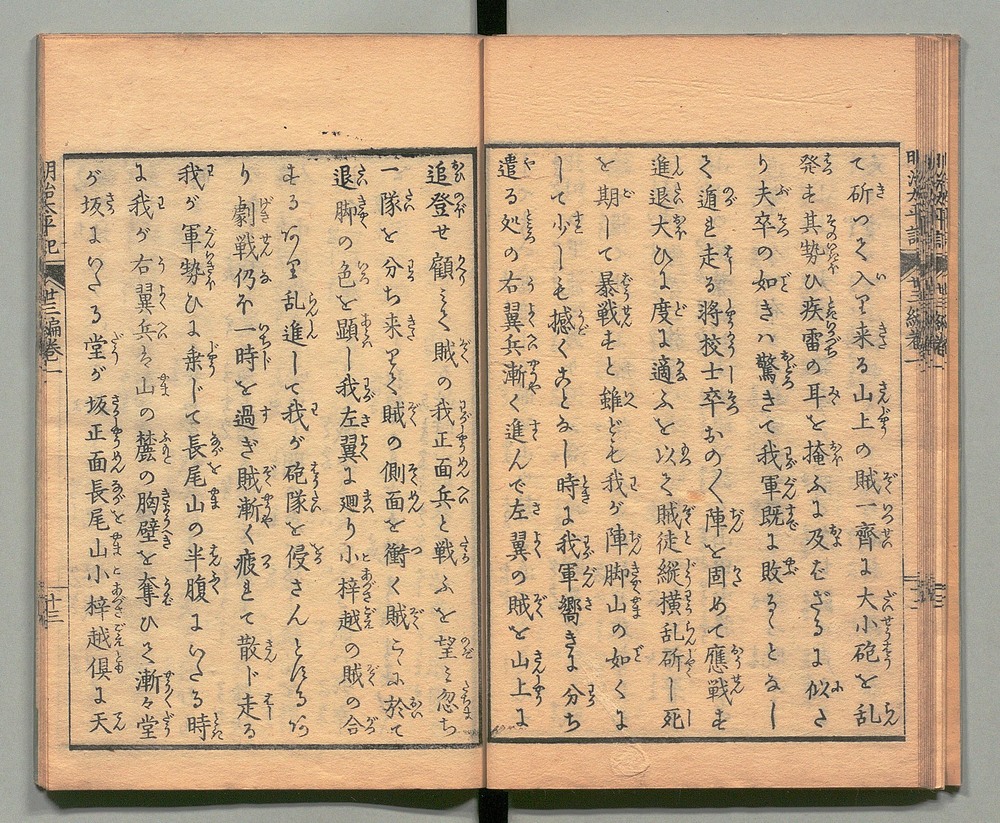 て斫つて入り来る山上の賊一齊に大小砲を乱
発も其勢ひ疾雷の耳を掩ふに及むざるに似さ
り夫卒の如きハ驚きて我軍既に敗るゝとなし
て遁れ走る将校士卒おの〱陣を固めて應戦も
進退大ひに度に適ふを以て賊徒縦横乱斫し死
を期して暴戦もと雖ども我が陣脚山の如くに
して少しも撼くことなし時に我軍嚮きに分ち
遣る処の右翼兵漸く進んで左翼の賊を山上に
追登せ顧ミて賊の我正面兵と戦ふを望ミ忽ち
一隊を分ち来りて賊の側面を衝く賊らに於て
退脚の色を顕し我左翼に廻り小梓越の賊の合
するあり乱進して我が砲隊を侵さんとはるあ
り劇戦仍不一時を過ぎ賊漸く疲れて散ド走る
我が軍勢ひに乗じて長尾山の半腹にいたる時
に我が右翼兵は山の麓の胸壁を奪ひて漸々堂
が坂にいたる堂が坂正面長尾山小梓越倶に天
明治太平記
廿三編巻一
十三